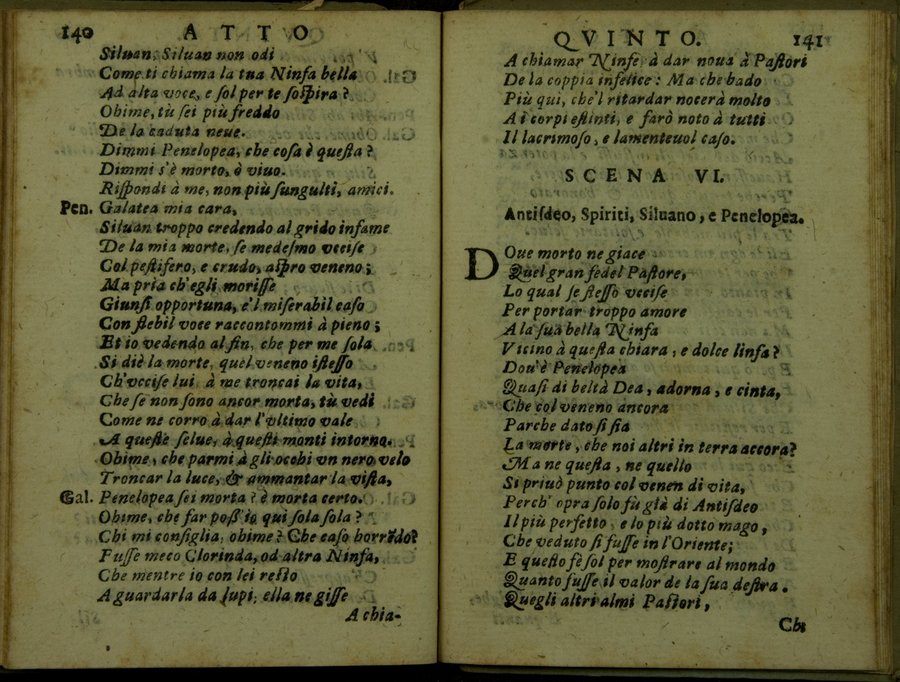 140 ATTO
Siluan, Siluan non odi
Come ti chiama la tua Ninfa bella
Ad alta voce, e ſol per te ſoſpira?
Ohime, tù ſei più freddo
De la caduta neue.
Dimmi Penelopea, che coſa è queſta?
Dimmi s'è morto, ò viuo.
Riſpondi à me, non più ſungulti, amici.
Pen. Galatea mia cara,
Siluan troppo credendo al grido infame
De la mia morte, ſe medeſmo vcciſe
Col peſtifero, e crudo, aſpro veneno;
Ma pria ch'egli moriſſe
Giunſi opportuna, e'l miſerabil caſo
Con flebil voce raccontommi à pieno;
Et io vedendo al fin, che per me ſola
Si diè la morte, quel veneno iſteſſo
Ch'vcciſe lui, à me troncai la vita,
Che ſe non ſono ancor morta, tù vedi
Come ne corro à dar l'vltimo vale
A queſte ſelue, à queſti monti intorno.
Ohime, che parmi à gli occhi vn nero velo
Troncar la luce, & ammantar la viſta,
Gal. Penelopea ſei morta? è morta certo.
Ohime, che far poſſ'io qui ſola ſola?
Chi mi conſiglia, ohime? Che caſo horrēdo?
Fuſſe meco Clorinda, od altra Ninfa,
Che mentre io con lei reſto
A guardarla da lupi, ella ne giſſe
A chia-
QVINTO. 141
A chiamar Ninfe, à dar noua à Paſtori
De la coppia infelice: Ma che bado
Più qui, che'l ritardar nocerà molto
A i corpi eſtinti, e farò noto à tutti
Il lacrimoſo, e lamenteuol caſo.
SCENA VI.
Antiſdeo, Spiriti, Siluano, e Penelopea.
DOue morto ne giace
Quel gran fedel Paſtore,
Lo qual ſe ſteſſo vcciſe
Per portar troppo amore
A la ſua bella Ninfa
Vicino à queſta chiara, e dolce linfa?
Dou'è Penelopea
Quaſi di beltà Dea, adorna, e cinta,
Che col veneno ancora
Parche dato ſi ſia
La morte, che noi altri in terra accora?
Ma ne queſta, ne quello
Si priuò punto col venen di vita,
Perch' opra ſolo fù già di Antiſdeo
Il più perfetto, e lo più dotto mago,
Che veduto ſi fuſſe in l'Oriente;
E queſto fè ſol per moſtrare al mondo
Quanto fuſſe il valor de la ſua deſtra.
Quegli altri almi Paſtori,
Chi